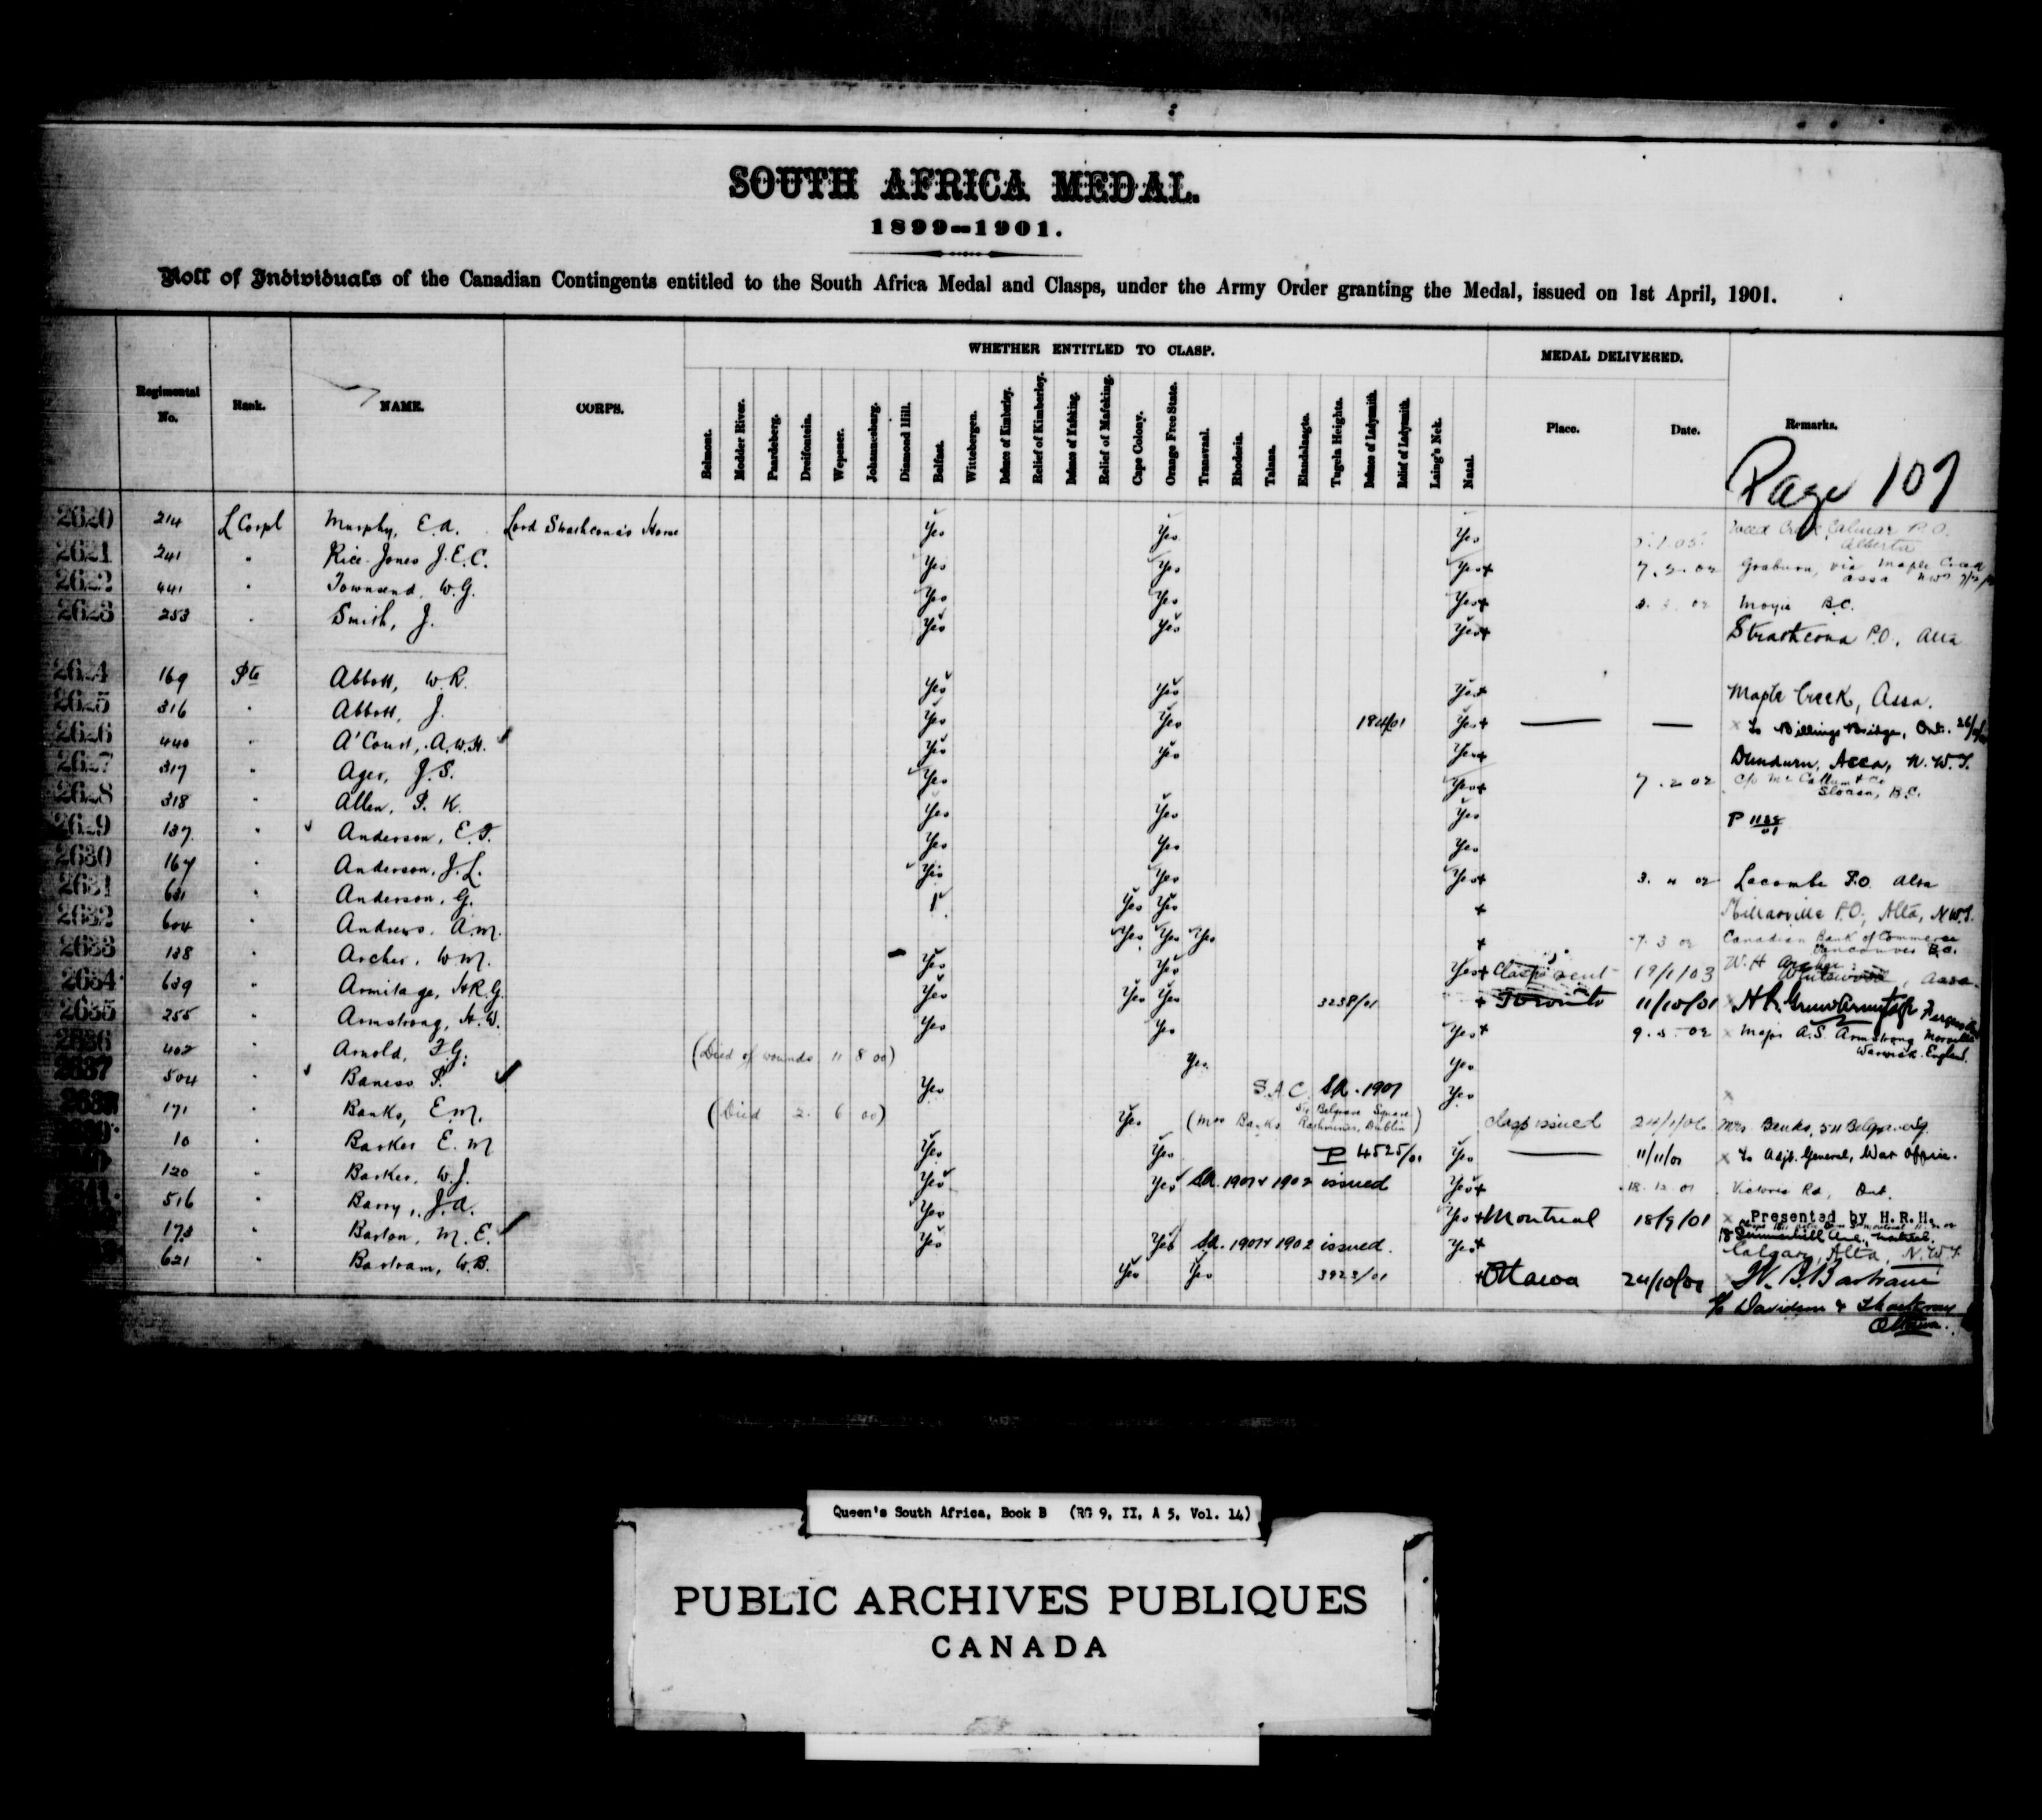 SOUTH AFRICA MEDAL.
1899--1901.
Roll of Individuals of the Canadian Contingents entitled to the South Africa Medal and Clasps, under the Army Order granting the Medal, issued on 1st April, 1901.
WHETHER ENTITLED TO CLASP.
MEDAL DELIVERED.
Regimental No. Rank. NAME. CORPS. Belmont. Modder River. Paardeberg. Dreifontein. Wepener. Johannesburg. Diamond Hill. Belfast. Wittebergen. Defence of Kimberley. Relief of Kimberley. Defence of Mafeking. Relief of Mafeking. Cape Colony. Orange Free State. Transvaal. Rhodesia. Talana. Elandslaagte. Tugela Heights. Defence of Ladysmith. Relief of Ladysmith. Laing's Nek. Natal. Place. Date. Remarks.
Page 107
2620 214 L Corpl Murphy, E.A. Lord Strathcona's Horse Yes Yes Yes Calmar P.O. Alberta
2621 241 " Rice-Jones J.E.C. Yes Yes Yes+ 7.2.02 Graburn, via Maple Creek Assa
2622 441 " Townsend, W.G. Yes Yes Yes+ Moyie B.C.
2623 253 " Smith, J. Yes Yes Yes+ Strathcona P.O. Alta
2624 169 Pte Abbott, W.R. Yes Yes Yes+ Maple Creek, Assa.
2625 316 " Abbott, J. Yes Yes 184/01 Yes+ — — x To Billings Bridge, Ont.
2626 440 " A'Court, A.W.H. Yes Yes Yes+ Dundurn, Assa, N.W.T.
2627 317 " Ager, J.S. Yes Yes+ 7.2.02 c/o McCallum & Co Slocan, B.C.
2628 318 " Allen, P.K. Yes Yes Yes
2629 137 " Anderson, E.T. Yes Yes Yes
2630 167 " Anderson, J.L. Yes Yes Yes+ Lacombe P.O. Alta
2631 631 " Anderson, G. Yes Yes + Millarville P.O, Alta, N.W.T.
2632 604 " Andrews, A.M. Yes Yes Yes + 7.3.02 Canadian Bank of Commerce Vancouver B.C.
2633 138 " Archer, W.M. Yes Yes Yes+ Clasps sent 19/1/03 W.H Archer Assa.
2634 639 " Armitage, H.R.G. Yes Yes Yes 3238/01 + Toronto 11/10/01
2635 255 " Armstrong, H.W. Yes Yes Yes+ 9.5.02 x Major A.S. Armstrong Warwick. England.
2636 402 " Arnold, F.G. (Died of wounds 11 8 00) Yes Yes
2637 504 " Baness P. Yes S.A.C. S.A. 1901 Yes x
171 " Banks, E.M. (Died 2. 6 00) Yes (Mrs Banks 54 Belgrave Square Rathmines, Dublin) Clasp issued 24/1/06 Mrs. Banks, 54 Belgrave Sq.
10 " Barker E.M Yes Yes P 4525/01 Yes — 11/11/01 x To Adjt. General, War Office.
120 " Barker, W.J. Yes Yes S.A. 1901 & 1902 issued Yes+ 18.12.01 Victoria Rd, Ont.
516 " Barry, J.A. Yes Yes + Montreal 18/9/01 x Presented by H.R.H.
18 Summerhill Ave., Montreal.
173 " Barton, M.E. Yes Yes S.A. 1901 & 1902 issued. Yes+ Calgary, Alta, N.W.T.
621 " Bartram, W.B. Yes Yes 3923/01 + Ottawa 24/10/01 W.B. Bartram
c/o Davidson & Thackray
Ottawa.
Queen's South Africa, Book B (RG 9, II, A 5, Vol. 14)
PUBLIC ARCHIVES PUBLIQUES
CANADA